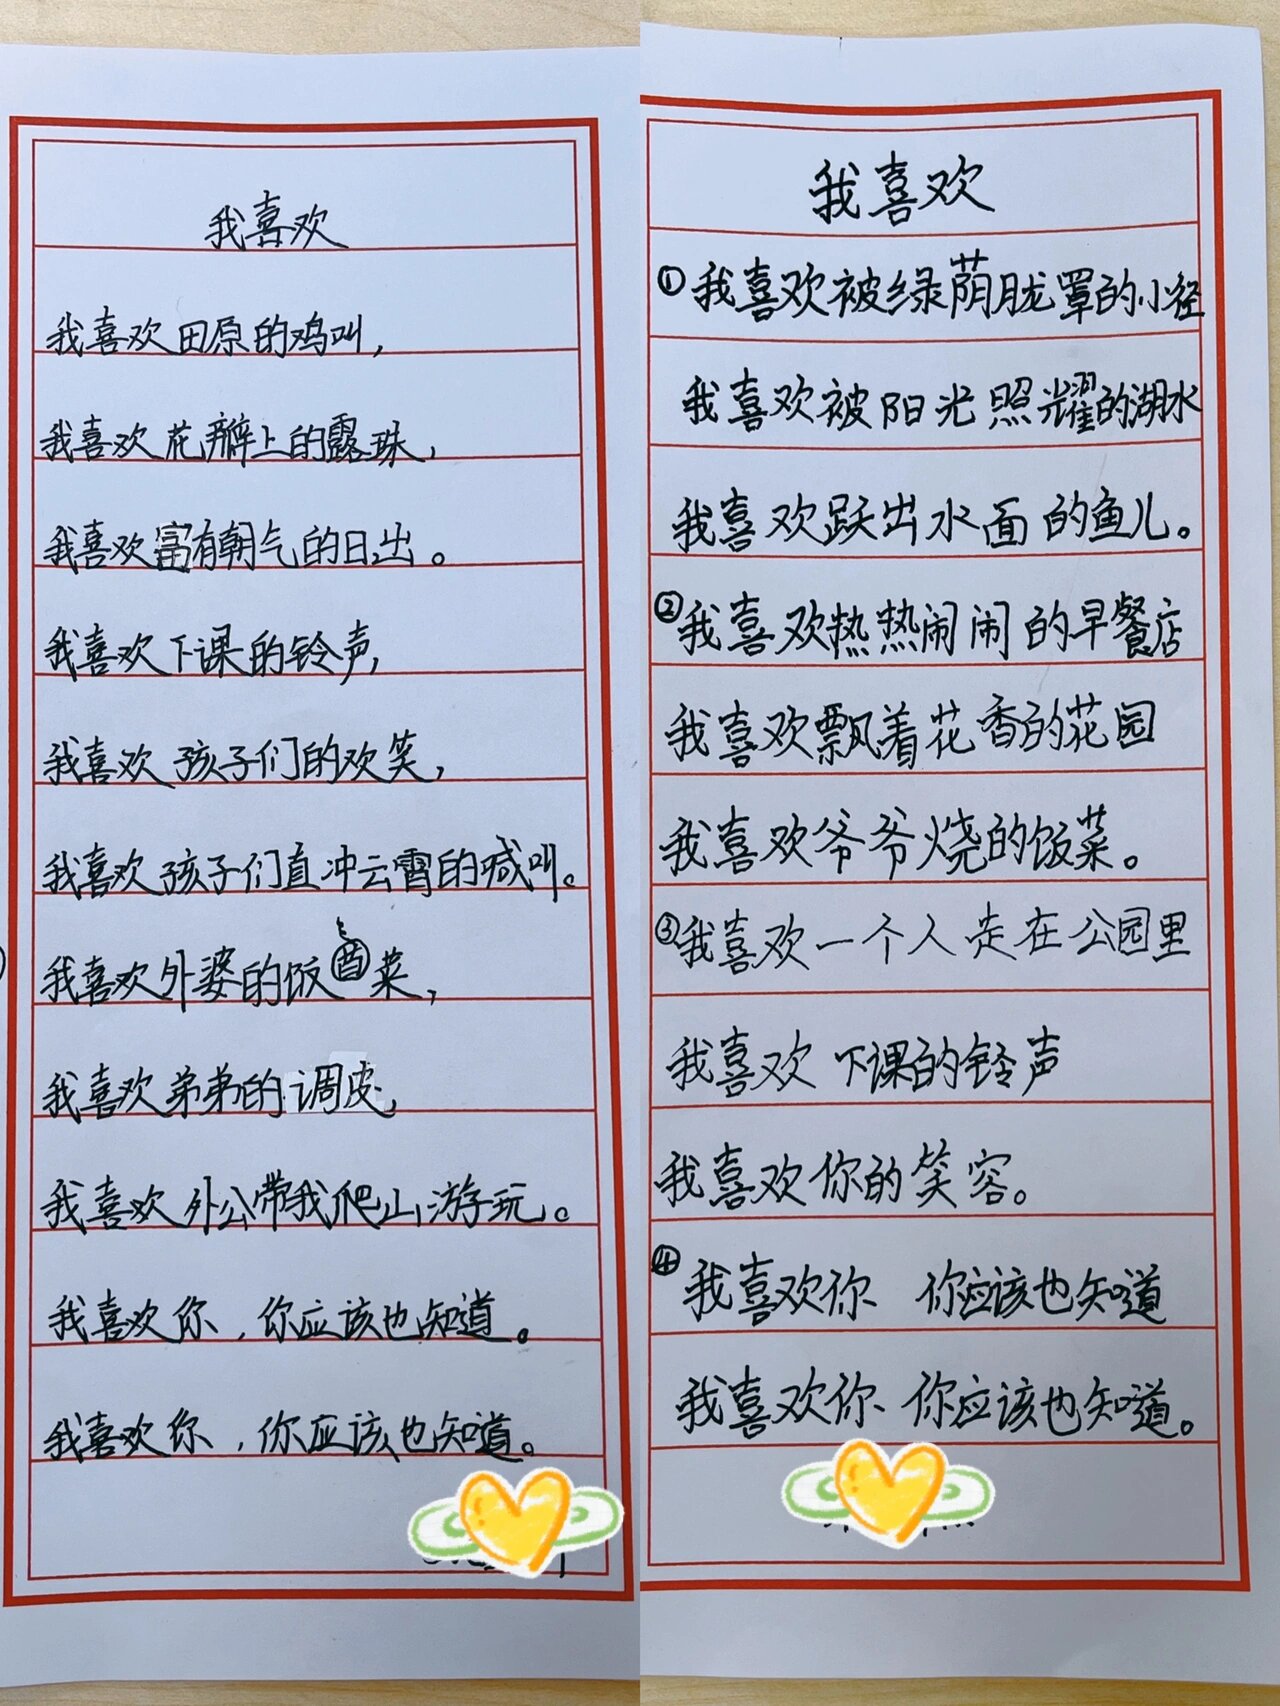 我喜欢
我喜欢田原的鸡叫，
我喜欢花瓣上的露珠，
我喜欢富有朝气的日出。
我喜欢下课的铃声，
我喜欢孩子们的欢笑，
我喜欢孩子们直冲云霄的喊叫。
我喜欢外婆的饭菜，
我喜欢弟弟的调皮，
我喜欢外公带我爬山游玩。
我喜欢你，你应该也知道。
我喜欢你，你应该也知道。
我喜欢
①我喜欢被绿荫胧罩的小径
我喜欢被阳光照耀的湖水
我喜欢跃出水面的鱼儿。
②我喜欢热热闹闹的早餐店
我喜欢飘着花香的花园
我喜欢爷爷烧的饭菜。
③我喜欢一个人走在公园里
我喜欢下课的铃声
我喜欢你的笑容。
④我喜欢你 你应该也知道
我喜欢你 你应该也知道。